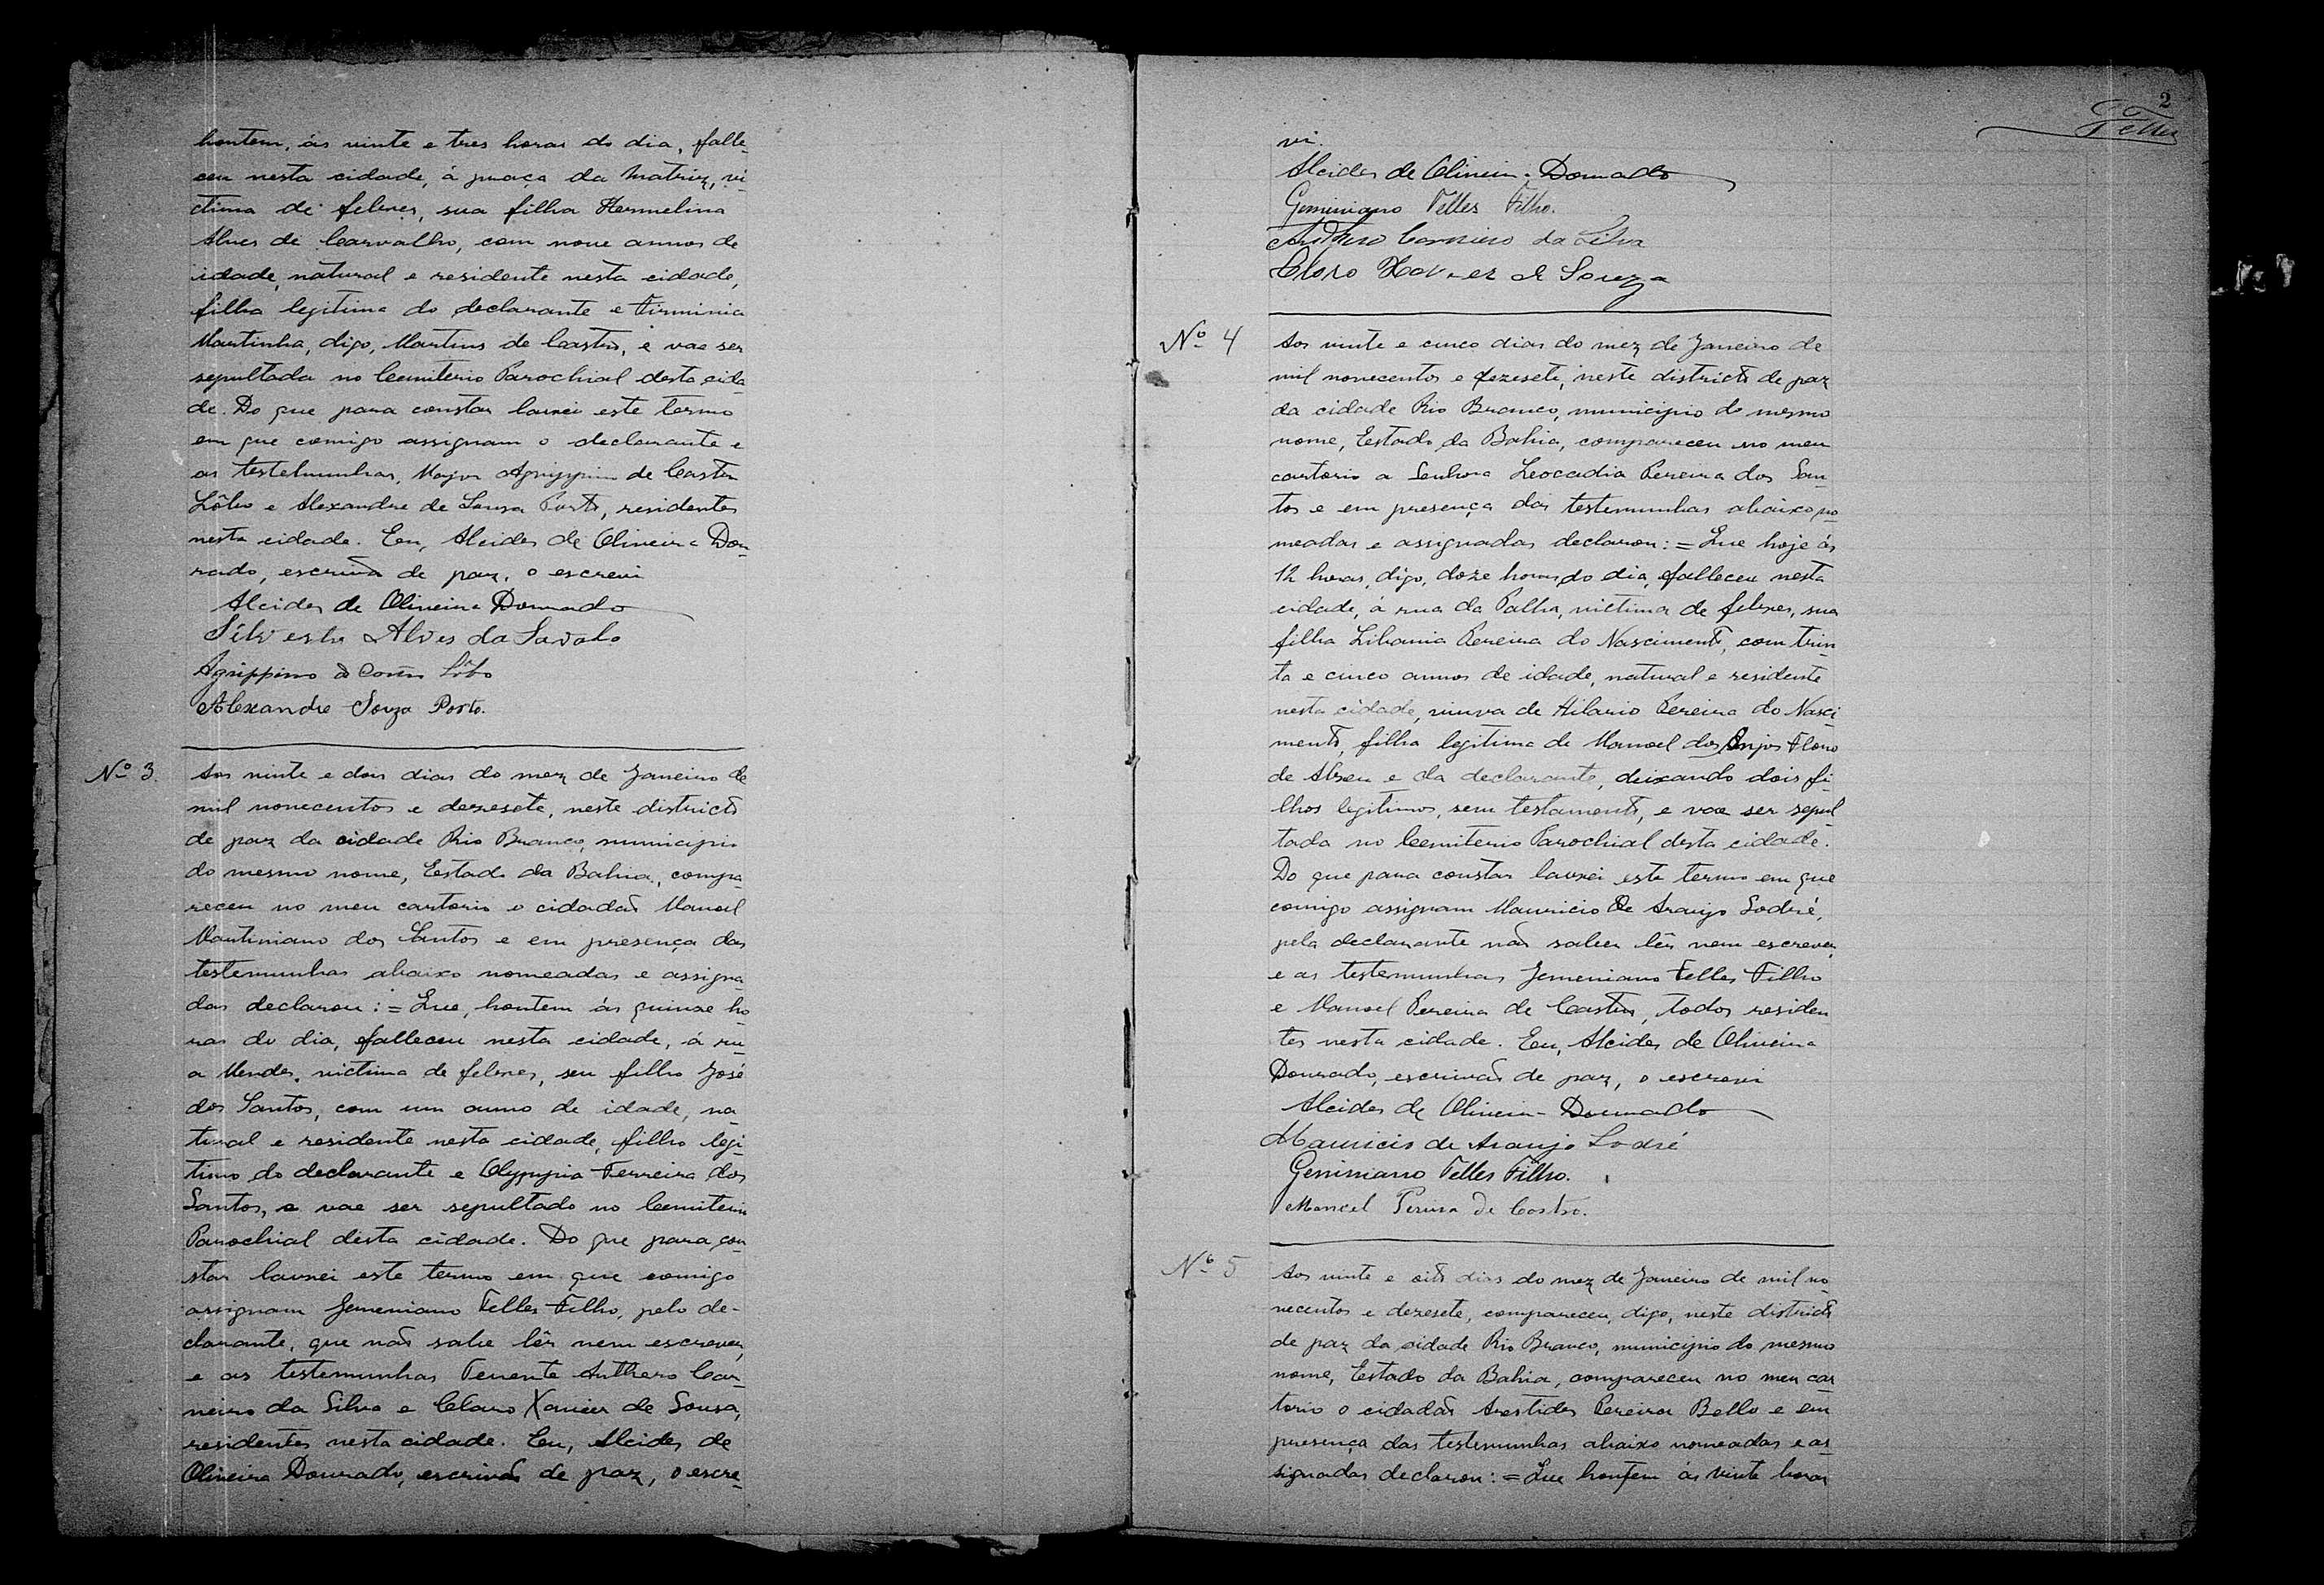 hontem, ás vinte e tres horas do dia, falle-
ceu nesta cidade, á praça da Matriz, vi-
ctima de febres, sua filha Hermelina
Alves de Carvalho, com nove annos de
idade, natural e residente nesta cidade,
filha legitima do declarante e Firminia
Martinha, digo, Martins de Castro, e vae ser
sepultada no Cemiterio Parochial desta cida
de. Do que para constar lavrei este termo
em que comigo assignam o declarante e
as testemunhas, Major Agrippino de Castro
Lôbo e Alexandre de Souza Porto, residentes
nesta cidade. Eu, Alcides de Oliveira Dou-
rado, escrivão de paz, o escrevi
Alcides de Oliveira Dourado
Silvestre Alves da
Agrippino de Castro Lôbo
Alexandre Souza Porto.
Nº 3.
Aos vinte e dois dias do mez de Janeiro de
mil novecentos e dezesete, neste districto
de paz da cidade Rio Branco, municipio
do mesmo nome, Estado da Bahia, compa-
receu no meu cartorio o cidadão Manoel
Martiniano dos Santos e em presença das
testemunhas abaixo nomeadas e assigna-
das declarou: = Que, hontem ás quinze ho-
ras do dia, falleceu nesta cidade, á ru-
a Mendes, victima de febres, seu filho José
dos Santos, com um anno de idade, na-
tural e residente nesta cidade, filho legi-
timo do declarante e Olympia Ferreira dos
Santos, e vae ser sepultado no Cemiterio
Parochial desta cidade. Do que para con-
star lavrei este termo em que comigo
assignam Jemeniano Telles Filho, pelo de-
clarante, que não sabe lêr nem escrever,
e as testemunhas Tenente Anthero Car-
neiro da Silva e Claro Xavier de Sousa,
residentes nesta cidade. Eu, Alcides de
Oliveira Dourado, escrivão de paz, o escre-
2
Telles
vi.
Alcides de Oliveira Dourado
Geminiano Telles Filho.
Anthero Carneiro da Silva
Claro Xavier de Souza
Nº 4
Aos vinte e cinco dias do mez de Janeiro de
mil novecentos e dezesete, neste districto de paz
da cidade Rio Branco, municipio do mesmo
nome, Estado da Bahia, compareceu no meu
cartorio a Senhora Leocadia Pereira dos San-
tos e em presença das testemunhas abaixo no-
meadas e assignadas declarou: = Que hoje ás
12 horas, digo, doze horas do dia, falleceu nesta
cidade, á rua da Palha, victima de febres, sua
filha Libania Pereira do Nascimento, com trin-
ta e cinco annos de idade, natural e residente
nesta cidade, viuva de Hilario Pereira do Nasci
mento, filha legitima de Manoel dos Anjos
de Abreu e da declarante, deixando dois fi-
lhos legitimos, sem testamento, e vae ser sepul-
tada no Cemiterio Parochial desta cidade.
Do que para constar lavrei este termo em que
comigo assignam Mauricio de Araujo Sodré,
pela declarante não saber lêr nem escrever,
e as testemunhas Jemeniano Telles Filho
e Manoel Pereira de Castro, todos residen
tes nesta cidade. Eu, Alcides de Oliveira
Dourado, escrivão de paz, o escrevi
Alcides de Oliveira Dourado
Mauricio de Araujo Sodré
Geminiano Telles Filho.
Manoel Pereira de Castro.
Nº 5
Aos vinte e oito dias do mez de Janeiro de mil no-
vecentos e dezesete, compareceu, digo, neste districto
de paz da cidade Rio Branco, municipio do mesmo
nome, Estado da Bahia, compareceu no meu car
torio o cidadão Arestides Pereira Bello e em
presença das testemunhas abaixo nomeadas e as
signadas declarou: = Que hontem ás vinte horas